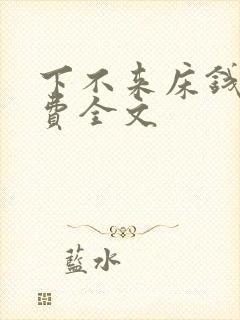 下不来床钱
費全文
藍水